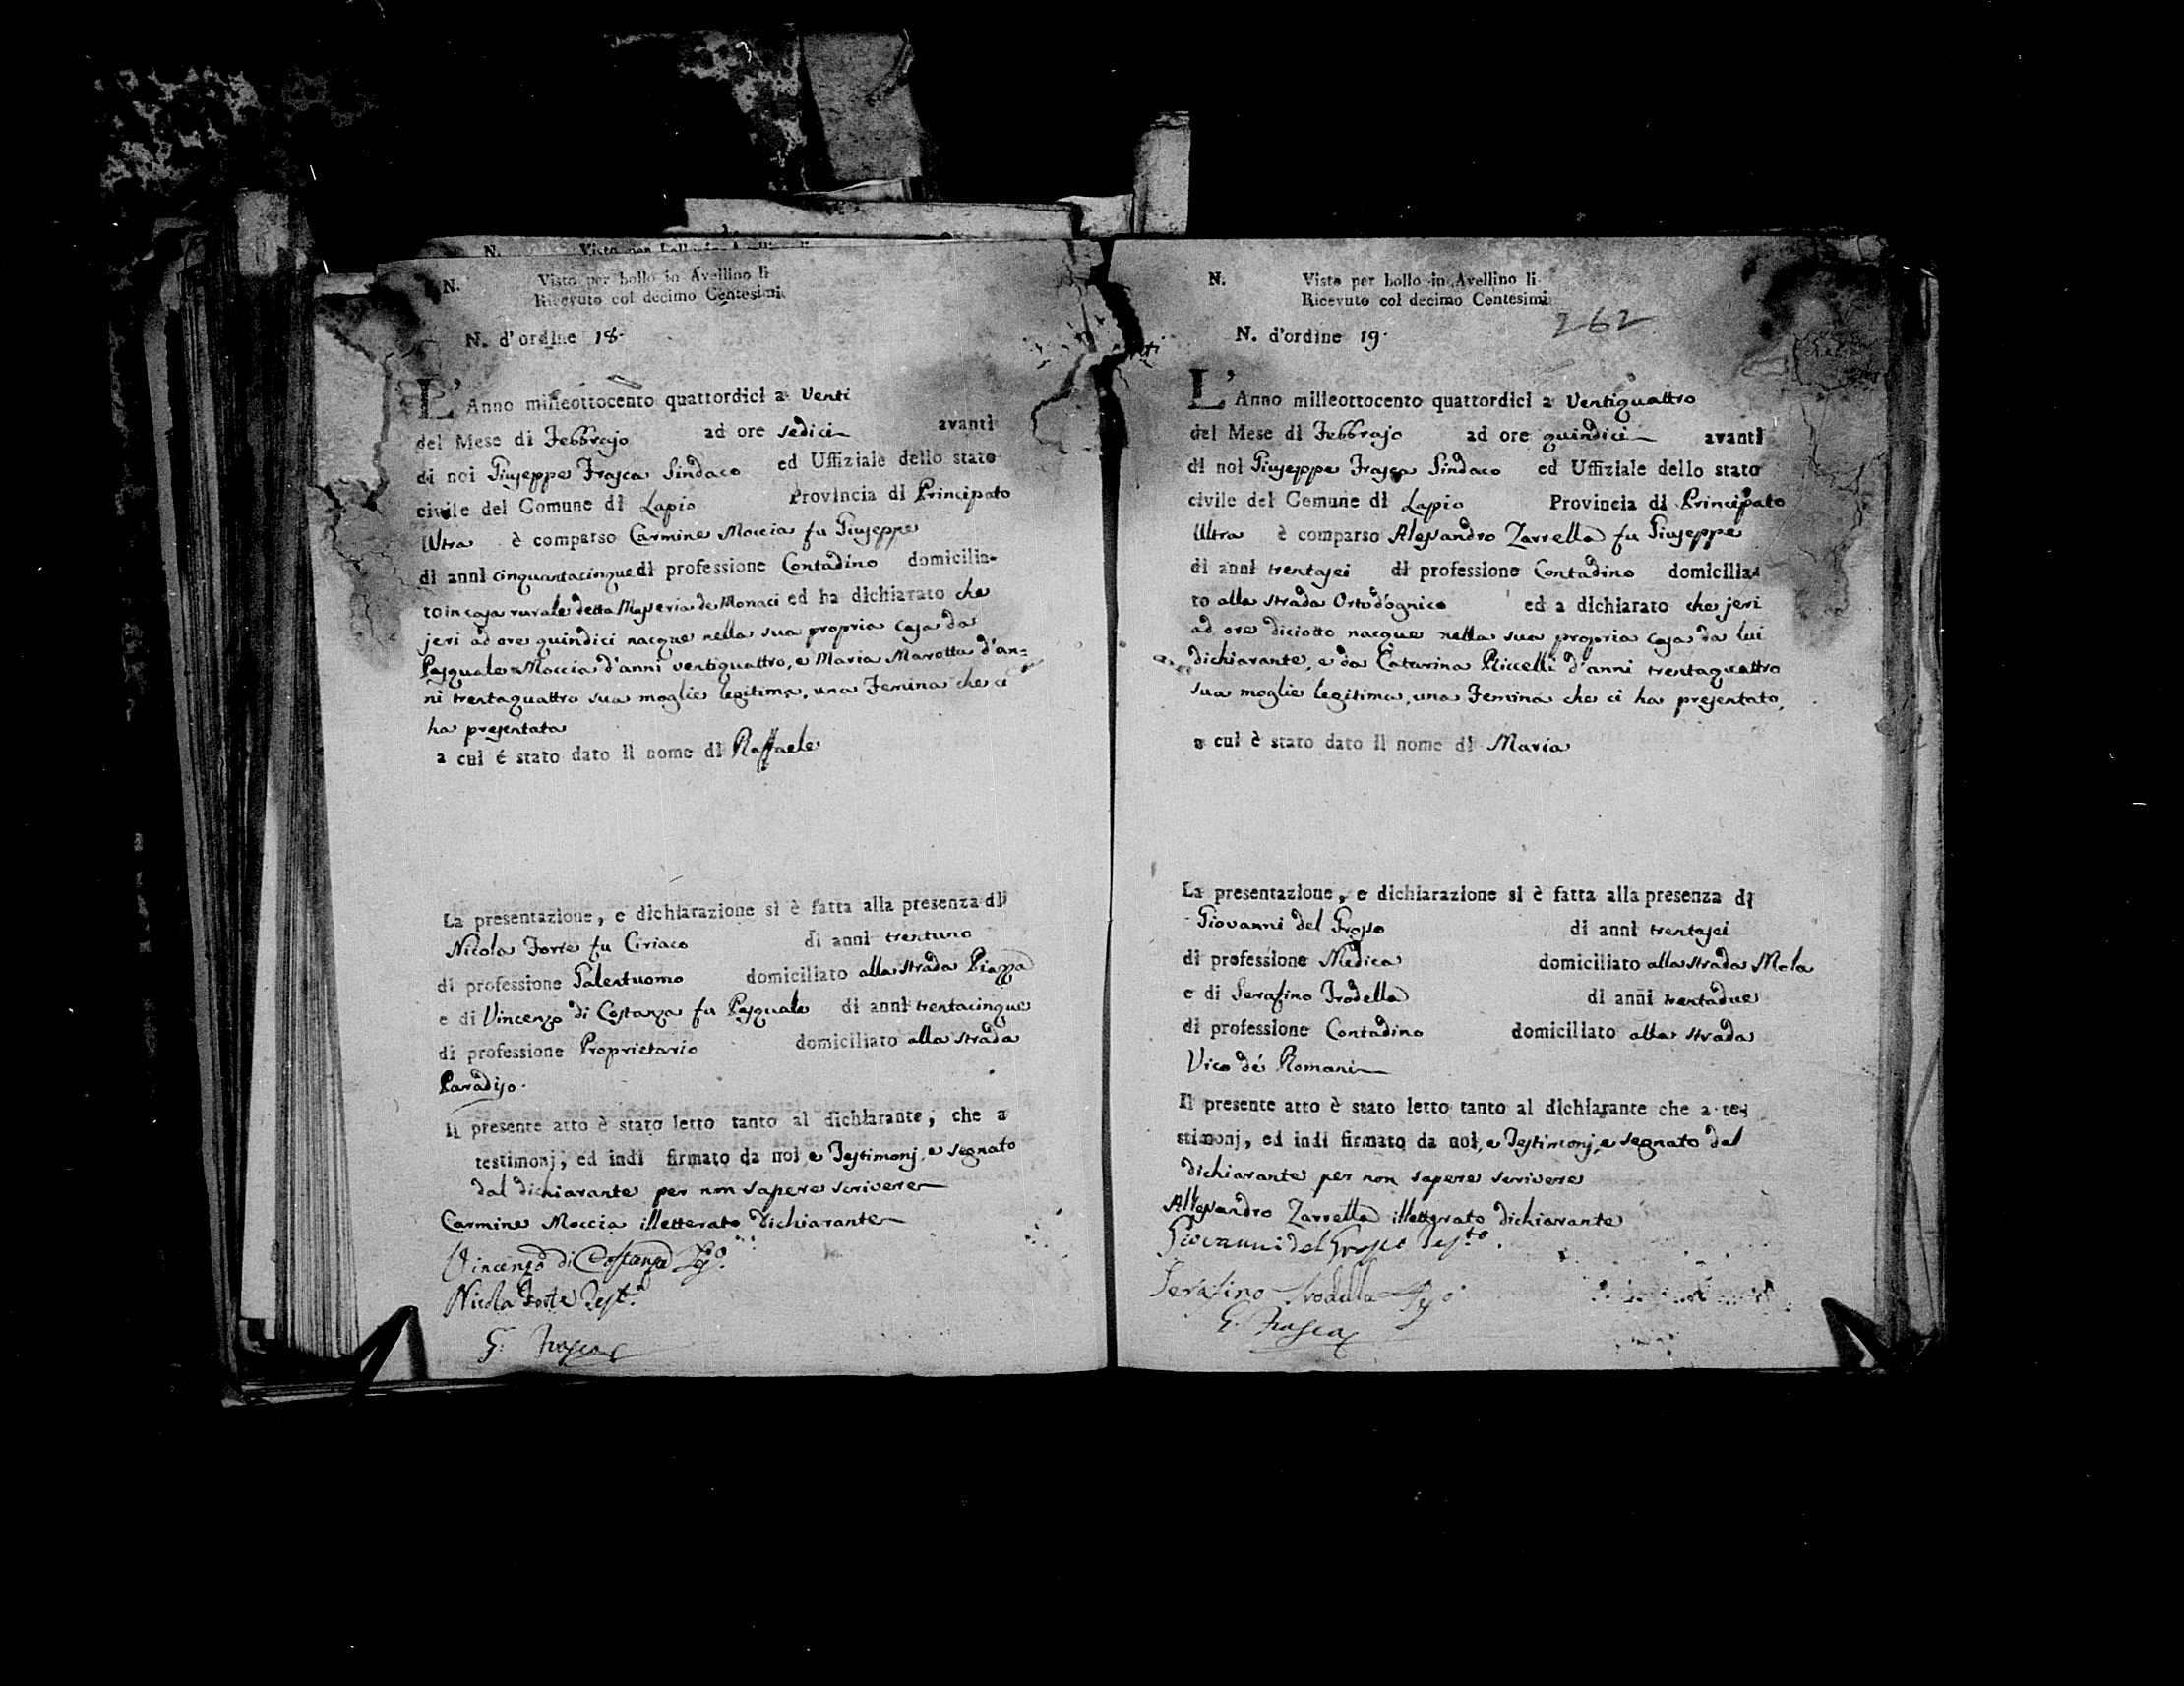 N. Visto per bollo in Avellino li
N. Visto per bollo in Avellino li
Ricevuto col decimo Centesimi
N. d'ordine 18.
L'Anno milleottocento quattordici a Venti
del Mese di Febbrajo ad ore sedici avanti
di noi Giuseppe Frasca Sindaco ed Uffiziale dello stato
civile del Comune di Lapio Provincia di Principato
Ultra è comparso Carmine Moccia fu Giuseppe
di anni cinquantacinque di professione Contadino domicilia-
to in casa rurale detta Masseria de Monaci ed ha dichiarato che
jeri ad ore quindici nacque nella sua propria casa da
Pasquale Moccia d'anni ventiquattro, e Maria Marotta d'an=
ni trentaquattro sua moglie legitima, una Femina che ci
ha presentata
a cui é stato dato il nome di Raffaele
La presentazione, e dichiarazione si è fatta alla presenza di
Nicola Forte fu Ciriaco di anni trentuno
di professione Galentuomo domiciliato alla strada Piazza
e di Vincenzo di Costanza fu Pasquale di anni trentacinque
di professione Proprietario domiciliato alla strada
Paradiso.
Il presente atto è stato letto tanto al dichiarante, che a
testimonj, ed indi firmato da noi e Testimonj, e segnato
dal dichiarante per non sapere scrivere
Carmine Moccia illetterato dichiarante
Vincenzo di Costanza Tes.o
Nicola Forte Test.o
G. Frasca
N. Visto per bollo in Avellino li
Ricevuto col decimo Centesimi
262
N. d'ordine 19.
L'Anno milleottocento quattordici a Ventiquattro
del Mese di Febbrajo ad ore quindici avanti
di noi Giuseppe Frasca Sindaco ed Uffiziale dello stato
civile del Comune di Lapio Provincia di Principato
Ultra è comparso Alesandro Zarrella fu Giuseppe
di anni trentasei di professione Contadino domicilia-
to alla strada Ortodognico ed a dichiarato che jeri
ad ore diciotto nacque nella sua propria casa da lui
dichiarante, e da Catarina Riccelli d'anni trentaquattro
sua moglie legitima, una Femina che ci ha presentato,
a cui è stato dato il nome di Maria
La presentazione, e dichiarazione si è fatta alla presenza di
Giovanni del Grosso di anni trentasei
di professione Medica domiciliato alla strada Mola
e di Serafino Trodella di anni trentadue
di professione Contadino domiciliato alla strada
Vico dé Romani
Il presente atto è stato letto tanto al dichiarante che a te-
stimonj, ed indi firmato da noi, e Testimonj, e segnato dal
dichiarante per non sapere scrivere
Allesandro Zarrella illetterato dichiarante
Giovanni del Grosso Tes.to
Serafino Trodella Tes.o
G. Frasca